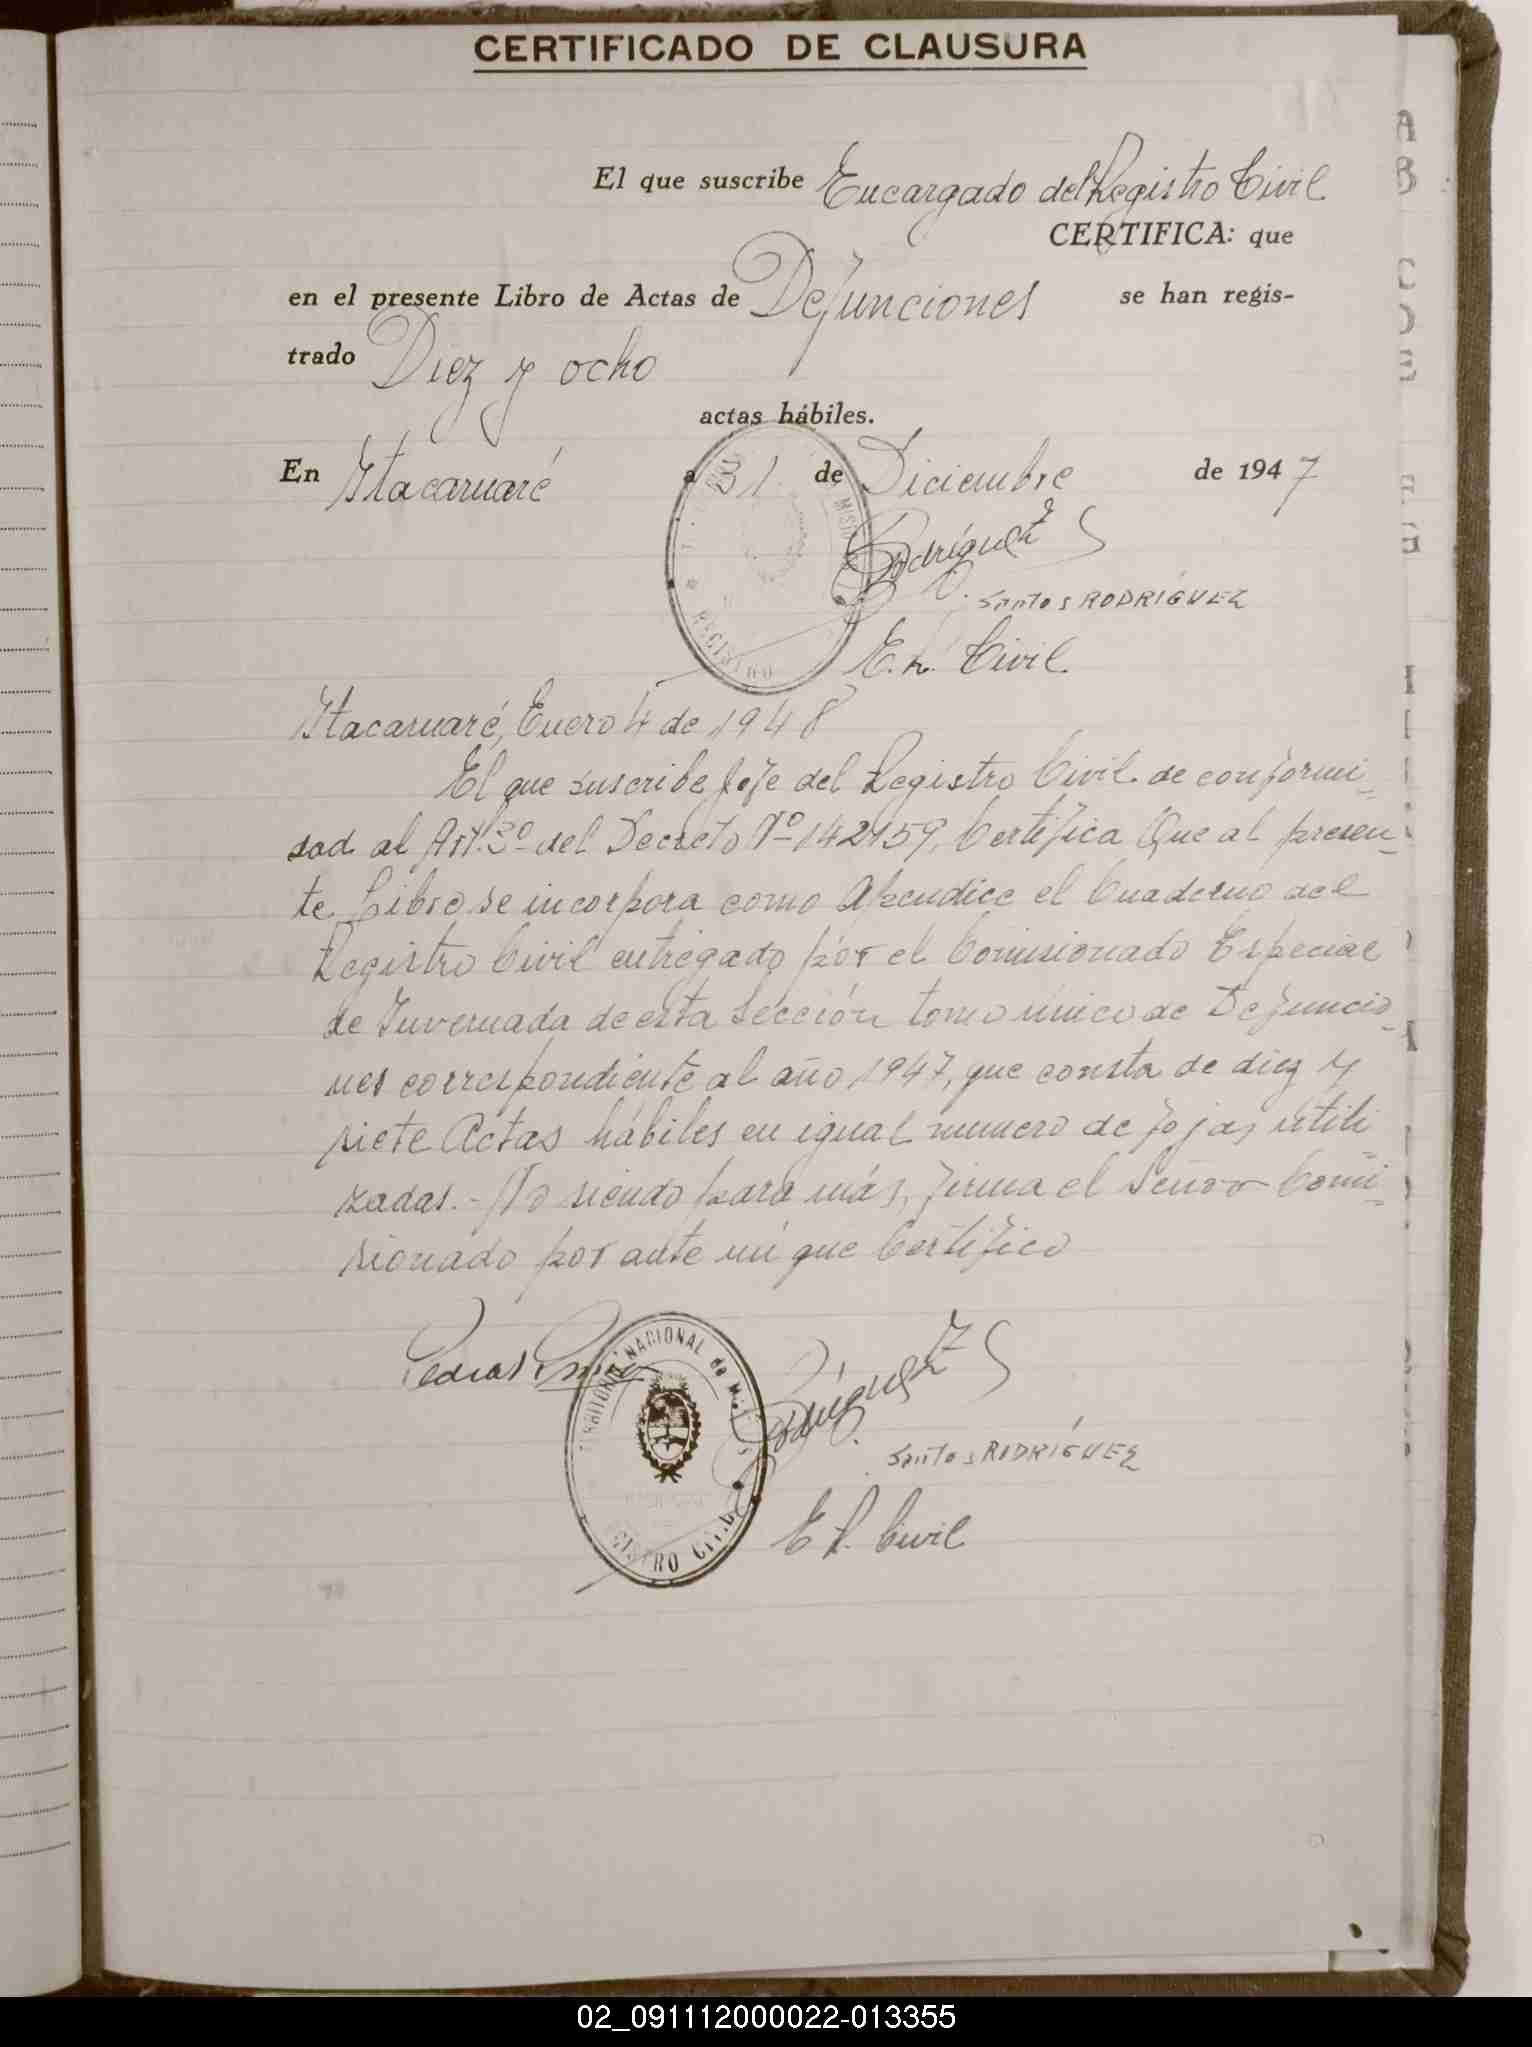 CERTIFICADO DE CLAUSURA
El que suscribe Encargado del Registro Civil
CERTIFICA: que
en el presente Libro de Actas de Defunciones se han regis-
trado Diez y ocho
actas hábiles.
En Itacaruaré a 31 de Diciembre de 1947
Rodríguez S
Santos RODRÍGUEZ
E. R. Civil
REGISTRO
Itacaruaré, Enero 4 de 1948
El que suscribe Jefe del Registro Civil de conformi-
dad al Art. 3º del Decreto Nº 142159, Certifica Que al presen-
te Libro se incorpora como Apendice el Cuaderno del
Registro Civil entregado por el Comisionado Especial
de Invernada de esta Sección tomo único de Defuncio-
nes correspondiente al año 1947, que consta de diez y
siete Actas hábiles en igual numero de fojas utili-
zadas.- No siendo para más, firma el Señor Comi-
sionado por ante mí que Certifico
TERRITORIO NACIONAL de
REGISTRO CIVIL
Rodríguez S
Santos RODRÍGUEZ
E R. Civil
02_091112000022-013355